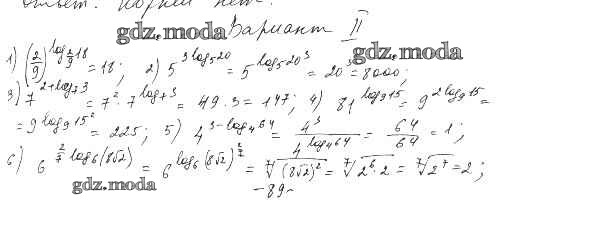 ответ: корней нет.
gdz.moda Вариант II
gdz.moda
1) (2/9)^(log_(2/9) 18) = 18; 2) 5^(3 log_5 20) = 5^(log_5 20^3) = 20^3 = 8000;
3) 7^(2+log_7 3) = 7^2 · 7^(log_7 3) = 49 · 3 = 147; 4) 81^(log_9 15) = 9^(2 log_9 15) =
= 9^(log_9 15^2) = 225; 5) 4^(3-log_4 64) = 4^3/4^(log_4 64) = 64/64 = 1;
6) 6^(2/7 log_6 (8√2)) = 6^(log_6 (8√2)^(2/7)) = ⁷√((8√2)^2) = ⁷√(2^6 · 2) = ⁷√(2^7) = 2;
gdz.moda
- 89 -